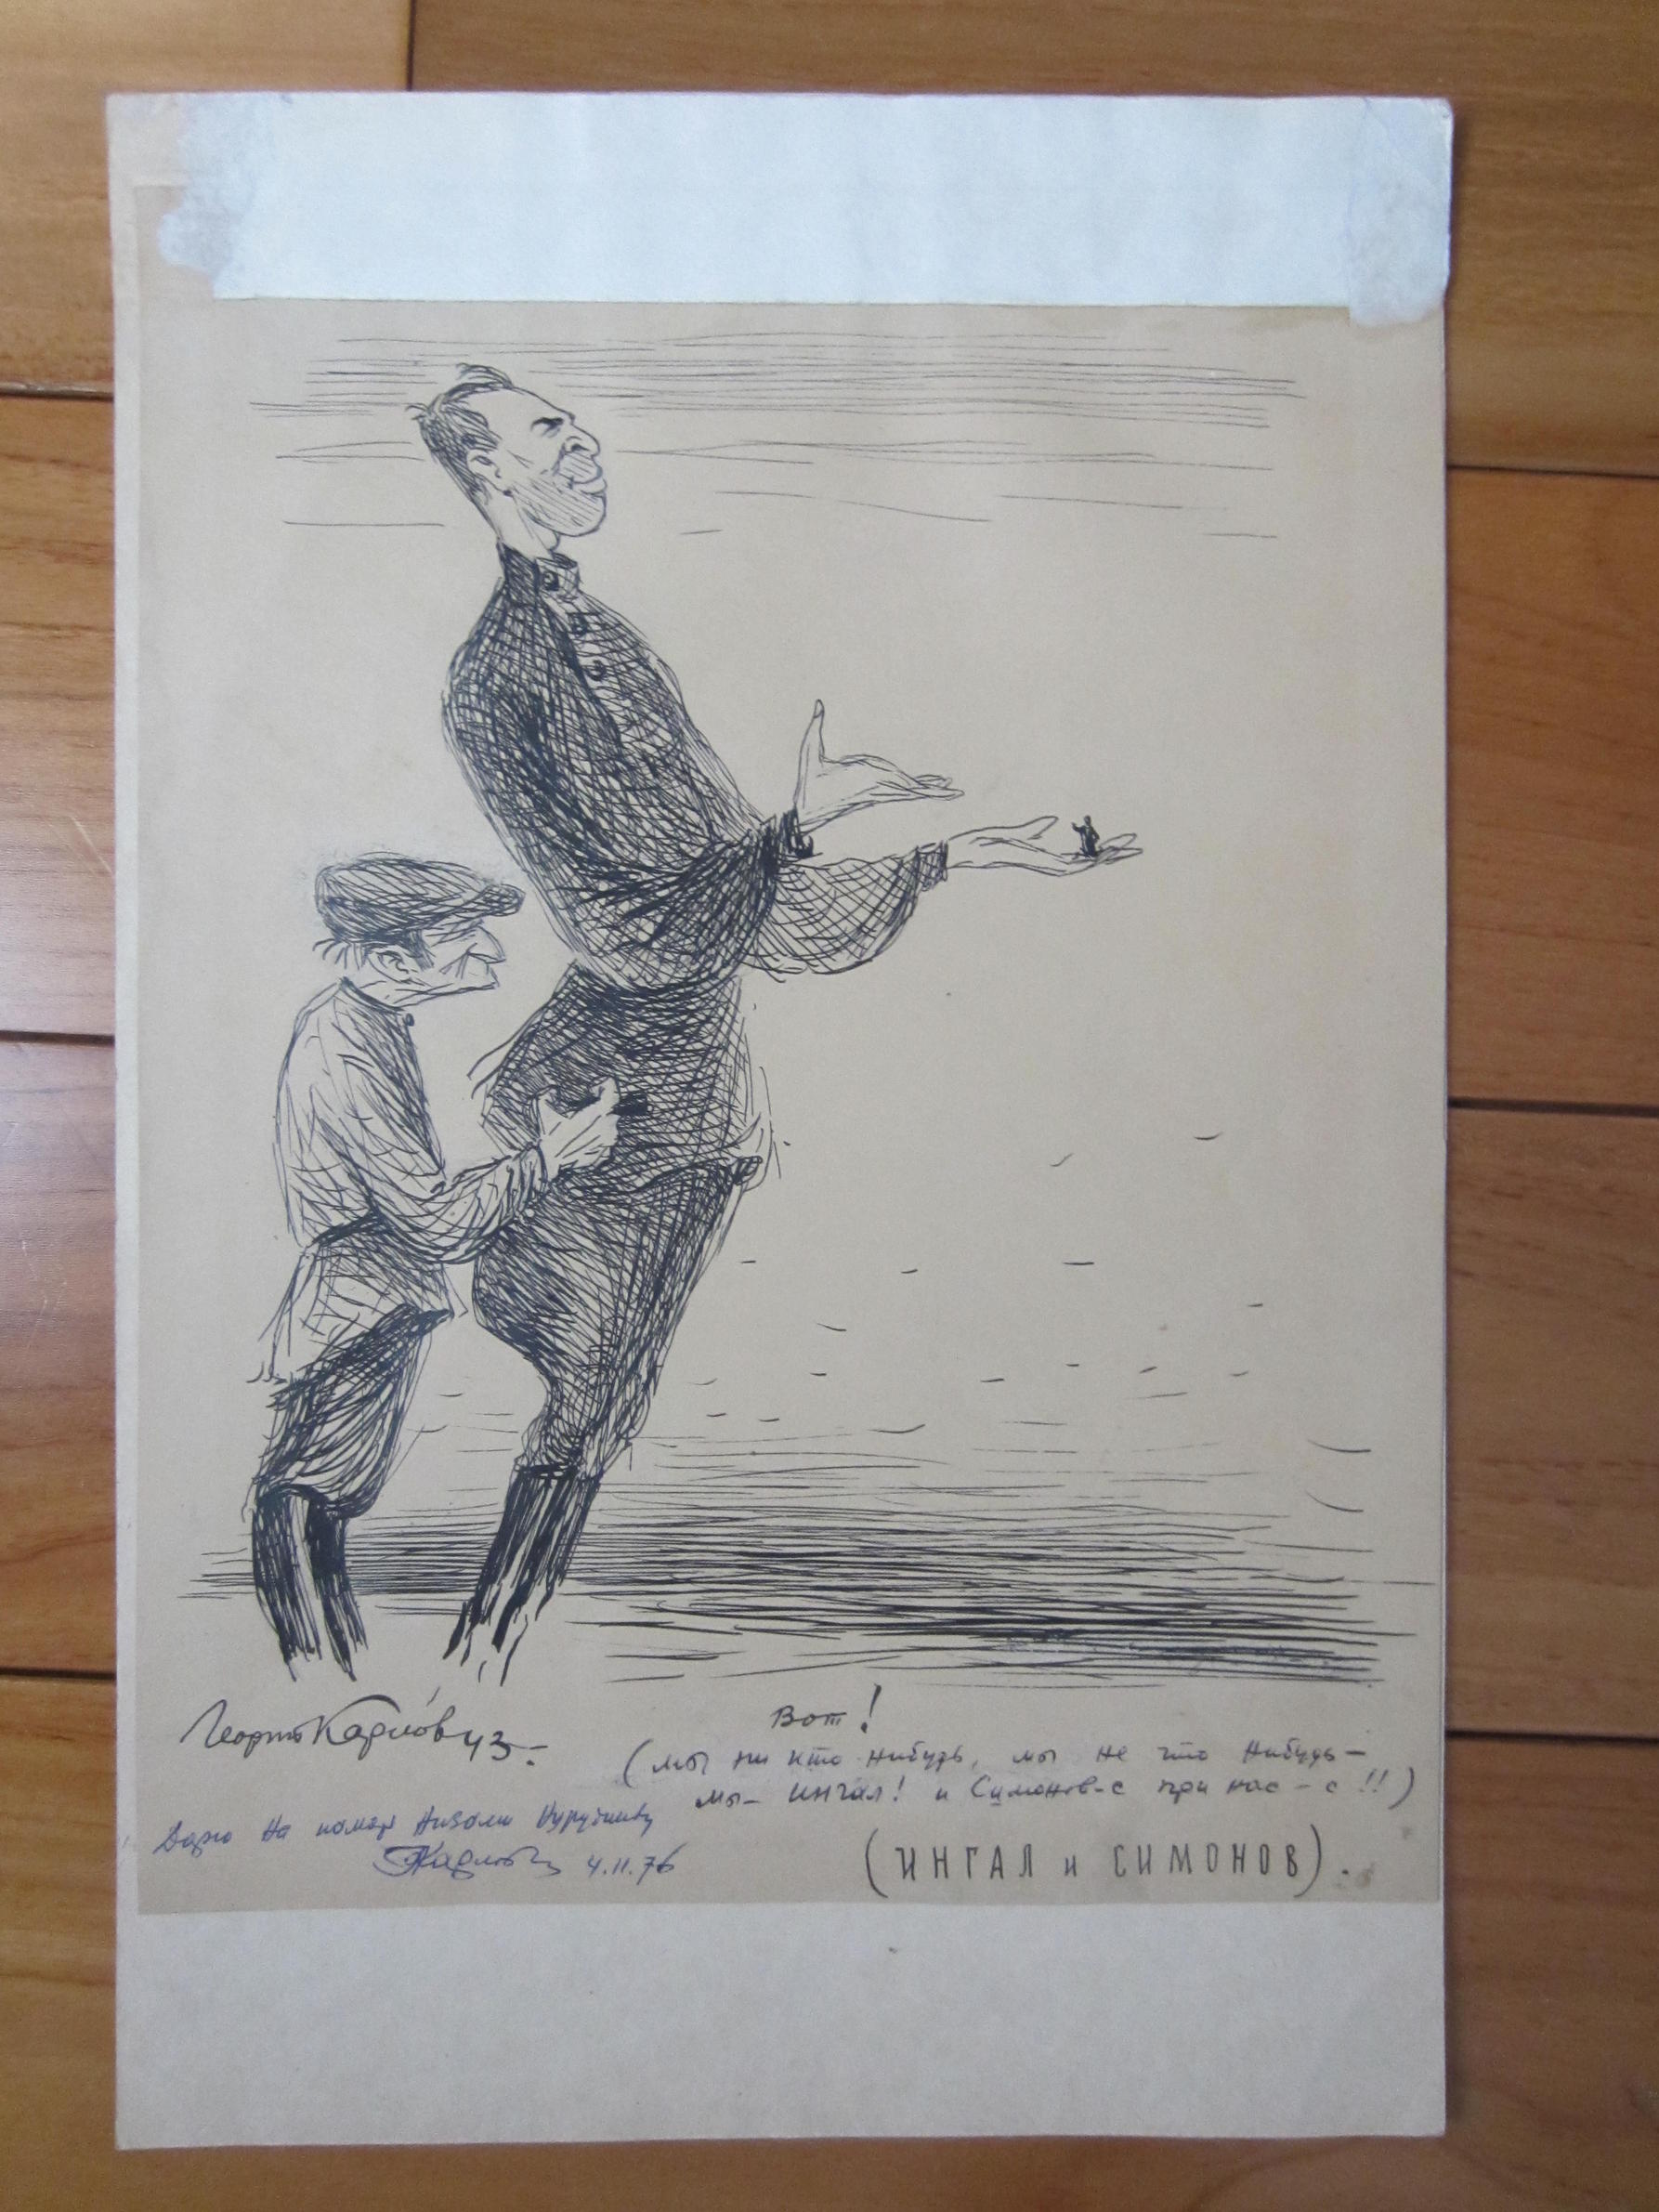 Георгий Карлов 43
Вот!
(мы ни кто-нибудь, мы не что нибудь—
мы— Ингал! и Симонов-с при нас-с!!)
Дарю на память
Карлов 4.11.76
(ИНГАЛ и СИМОНОВ).